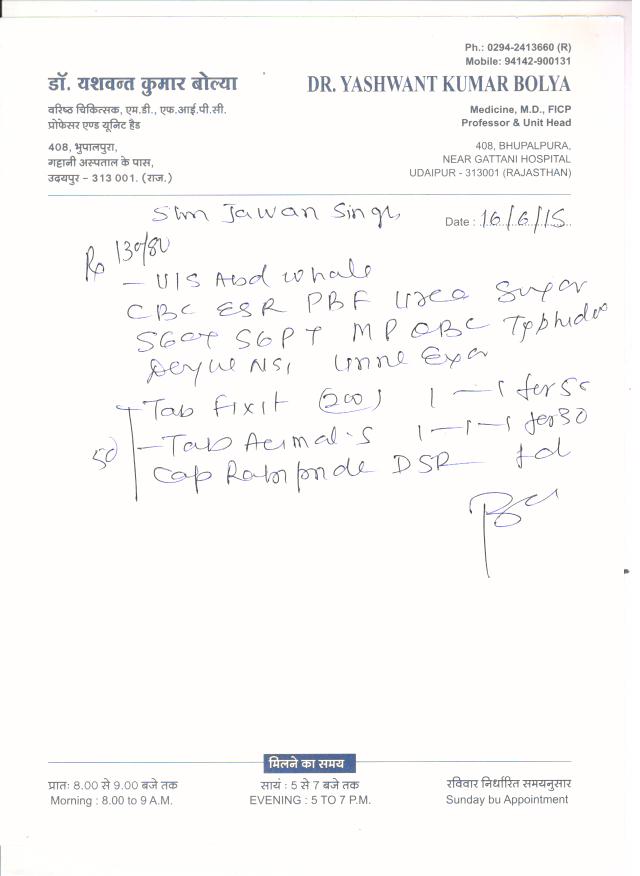 Ph.: 0294-2413660 (R)
Mobile: 94142-900131
डॉ. यशवन्त कुमार बोल्या
DR. YASHWANT KUMAR BOLYA
वरिष्ठ चिकित्सक, एम.डी., एफ.आई.पी.सी.
प्रोफेसर एण्ड यूनिट हैड
Medicine, M.D., FICP
Professor & Unit Head
408, भुपालपुरा,
गट्टानी अस्पताल के पास,
उदयपुर – 313 001. (राज.)
408, BHUPALPURA,
NEAR GATTANI HOSPITAL
UDAIPUR - 313001 (RAJASTHAN)
Jawan Singh
Date : 16/6/15
Rx 130/80
- U/S Abd whole
CBC ESR PBF Urea Sugar
SGOT SGPT MP QBC
NS1 Urine Exa
Tab Fixit (200) 1 — 1 for 5d
- Tab 1 - 1 - 1 for 3d
5d
Cap DSR
मिलने का समय
प्रातः 8.00 से 9.00 बजे तक
Morning : 8.00 to 9 A.M.
सायं : 5 से 7 बजे तक
EVENING : 5 TO 7 P.M.
रविवार निर्धारित समयनुसार
Sunday bu Appointment